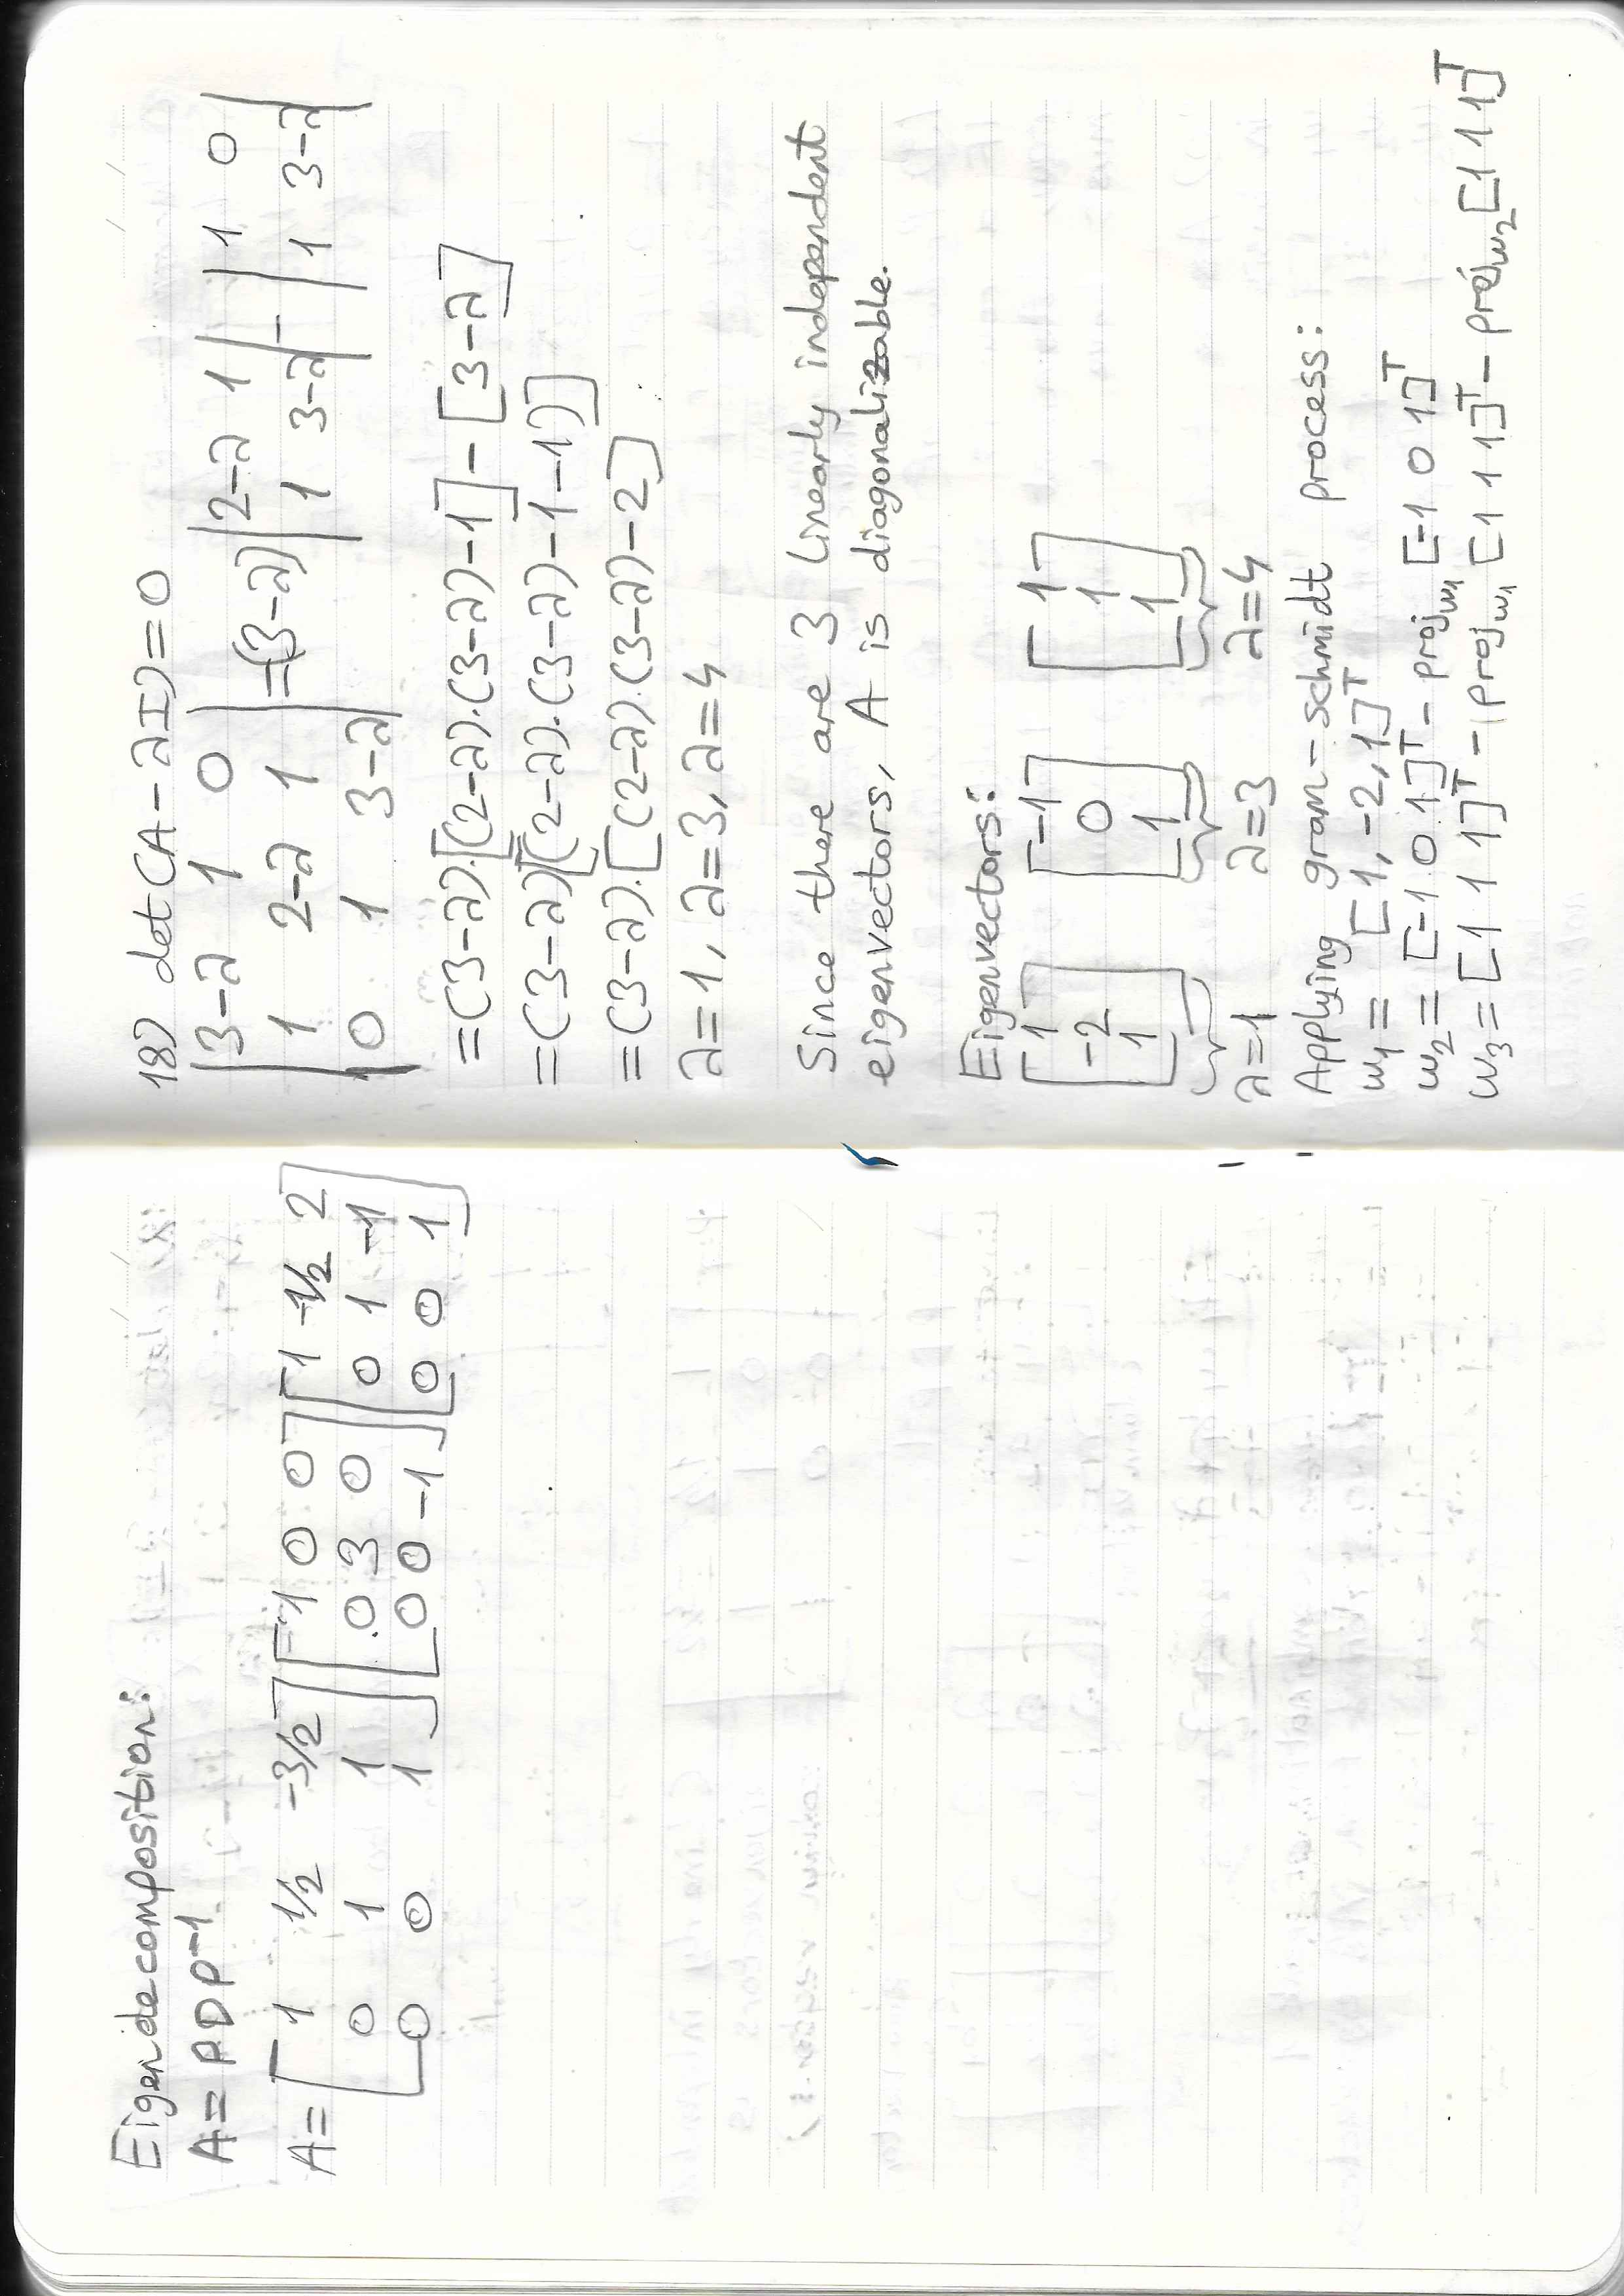 Eigendecomposition:
A = PDP⁻¹
A = [1 1/2 -3/2; 0 1 1; 0 0 1] [-1 0 0; 0 3 0; 0 0 -1] [1 -1/2 2; 0 1 -1; 0 0 1]
18) det(A - λI) = 0
|3-λ 1 0; 1 2-λ 1; 0 1 3-λ| = (3-λ) |2-λ 1; 1 3-λ| - |1 0; 1 3-λ|
= (3-λ)·[(2-λ)·(3-λ)-1] - [3-λ]
= (3-λ)[(2-λ)·(3-λ)-1-1)]
= (3-λ)·[(2-λ)·(3-λ)-2]
λ=1, λ=3, λ=4
Since there are 3 linearly independent
eigenvectors, A is diagonalizable.
Eigenvectors:
[1; -2; 1] [-1; 0; 1] [1; 1; 1]
λ=1 λ=3 λ=4
Applying gram-schmidt process:
w₁ = [1, -2, 1]ᵀ
w₂ = [-1 0 1]ᵀ - proj_w₁ [-1 0 1]ᵀ
w₃ = [1 1 1]ᵀ - proj_w₁ [1 1 1]ᵀ - proj_w₂ [1 1 1]ᵀ